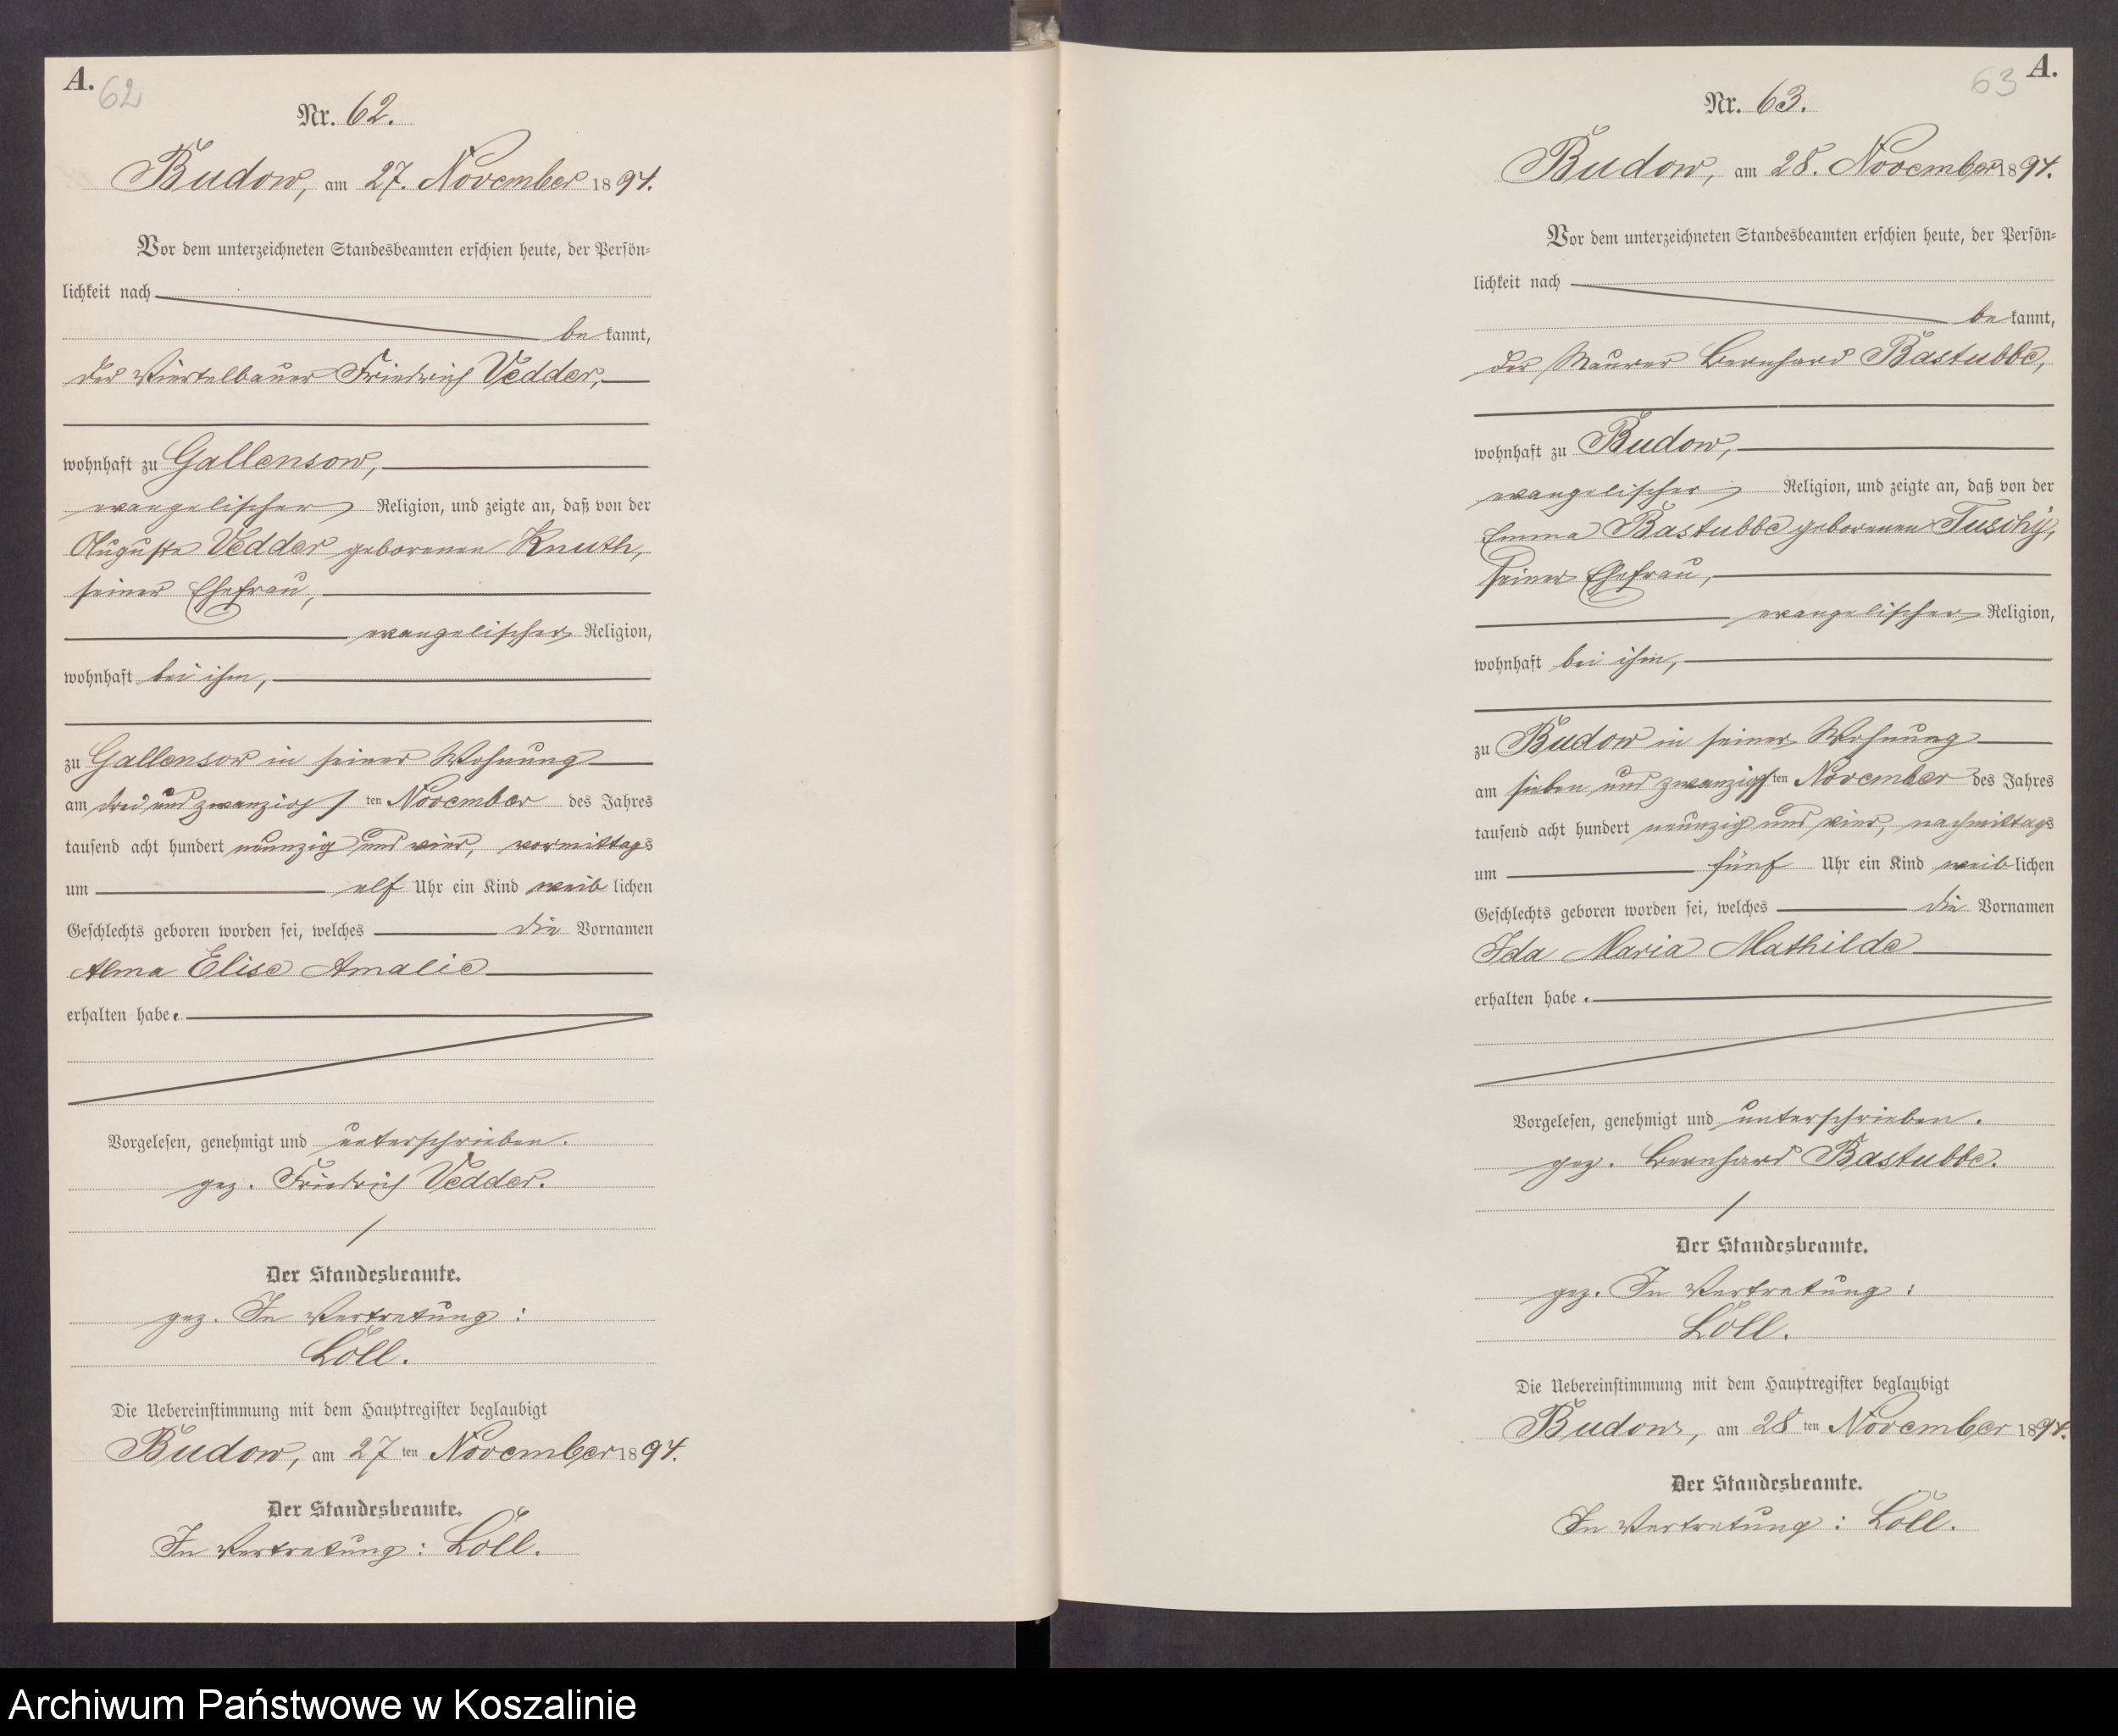 A.
62
Nr. 62.
Budow, am 27. November 1894.
Vor dem unterzeichneten Standesbeamten erschien heute, der Persön-
lichkeit nach
be kannt,
der Viertelbauer Friedrich Vedder,
wohnhaft zu Gallensow,
evangelischer Religion, und zeigte an, daß von der
Auguste Vedder geborenen Knuth,
seiner Ehefrau,
evangelischer Religion,
wohnhaft bei ihm,
zu Gallensow in seiner Wohnung
am drei und zwanzigs ten November des Jahres
tausend acht hundert neunzig und vier, vormittags
um elf Uhr ein Kind weib lichen
Geschlechts geboren worden sei, welches die Vornamen
Alma Elise Amalie
erhalten habe.
Vorgelesen, genehmigt und unterschrieben.
gez. Friedrich Vedder.
Der Standesbeamte.
gez. In Vertretung:
Löll.
Die Uebereinstimmung mit dem Hauptregister beglaubigt
Budow, am 27 ten November 1894.
Der Standesbeamte.
In Vertretung: Löll.
63 A.
Nr. 63.
Budow, am 28. November 1894.
Vor dem unterzeichneten Standesbeamten erschien heute, der Persön-
lichkeit nach
be kannt,
der Maurer Bernhard Bastubbe,
wohnhaft zu Budow,
evangelischer Religion, und zeigte an, daß von der
Emma Bastubbe geborenen Tuschy,
seiner Ehefrau,
evangelischer Religion,
wohnhaft bei ihm,
zu Budow in seiner Wohnung
am sieben und zwanzigs ten November des Jahres
tausend acht hundert neunzig und vier, nachmittags
um fünf Uhr ein Kind weib lichen
Geschlechts geboren worden sei, welches die Vornamen
Ida Maria Mathilde
erhalten habe.
Vorgelesen, genehmigt und unterschrieben.
gez. Bernhard Bastubbe.
Der Standesbeamte.
gez. In Vertretung:
Löll.
Die Uebereinstimmung mit dem Hauptregister beglaubigt
Budow, am 28 ten November 1894.
Der Standesbeamte.
In Vertretung: Löll.
Archiwum Państwowe w Koszalinie